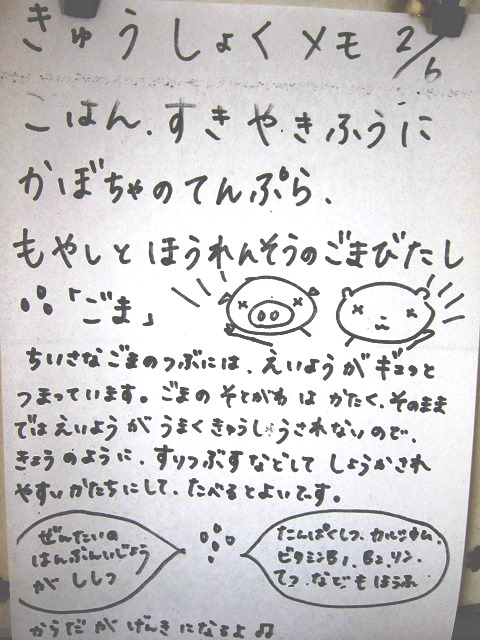 きゅうしょくメモ 2/6
ごはん、すきやきふうに
かぼちゃのてんぷら、
もやしとほうれんそうのごまびたし
「ごま」
ちいさなごまのつぶには、えいようがギュッと
つまっています。ごまのそとがわはかたく、そのまま
ではえいようがうまくきゅうしゅうされないので、
きょうのように、すりつぶすなどしてしょうかされ
やすいかたちにして、たべるとよいです。
ぜんたいの
はんぶんいじょう
がししつ
たんぱくしつ、カルシウム、
ビタミンB1、B2、リン、
てつ、なども ほうふ
からだがげんきになるよ♫